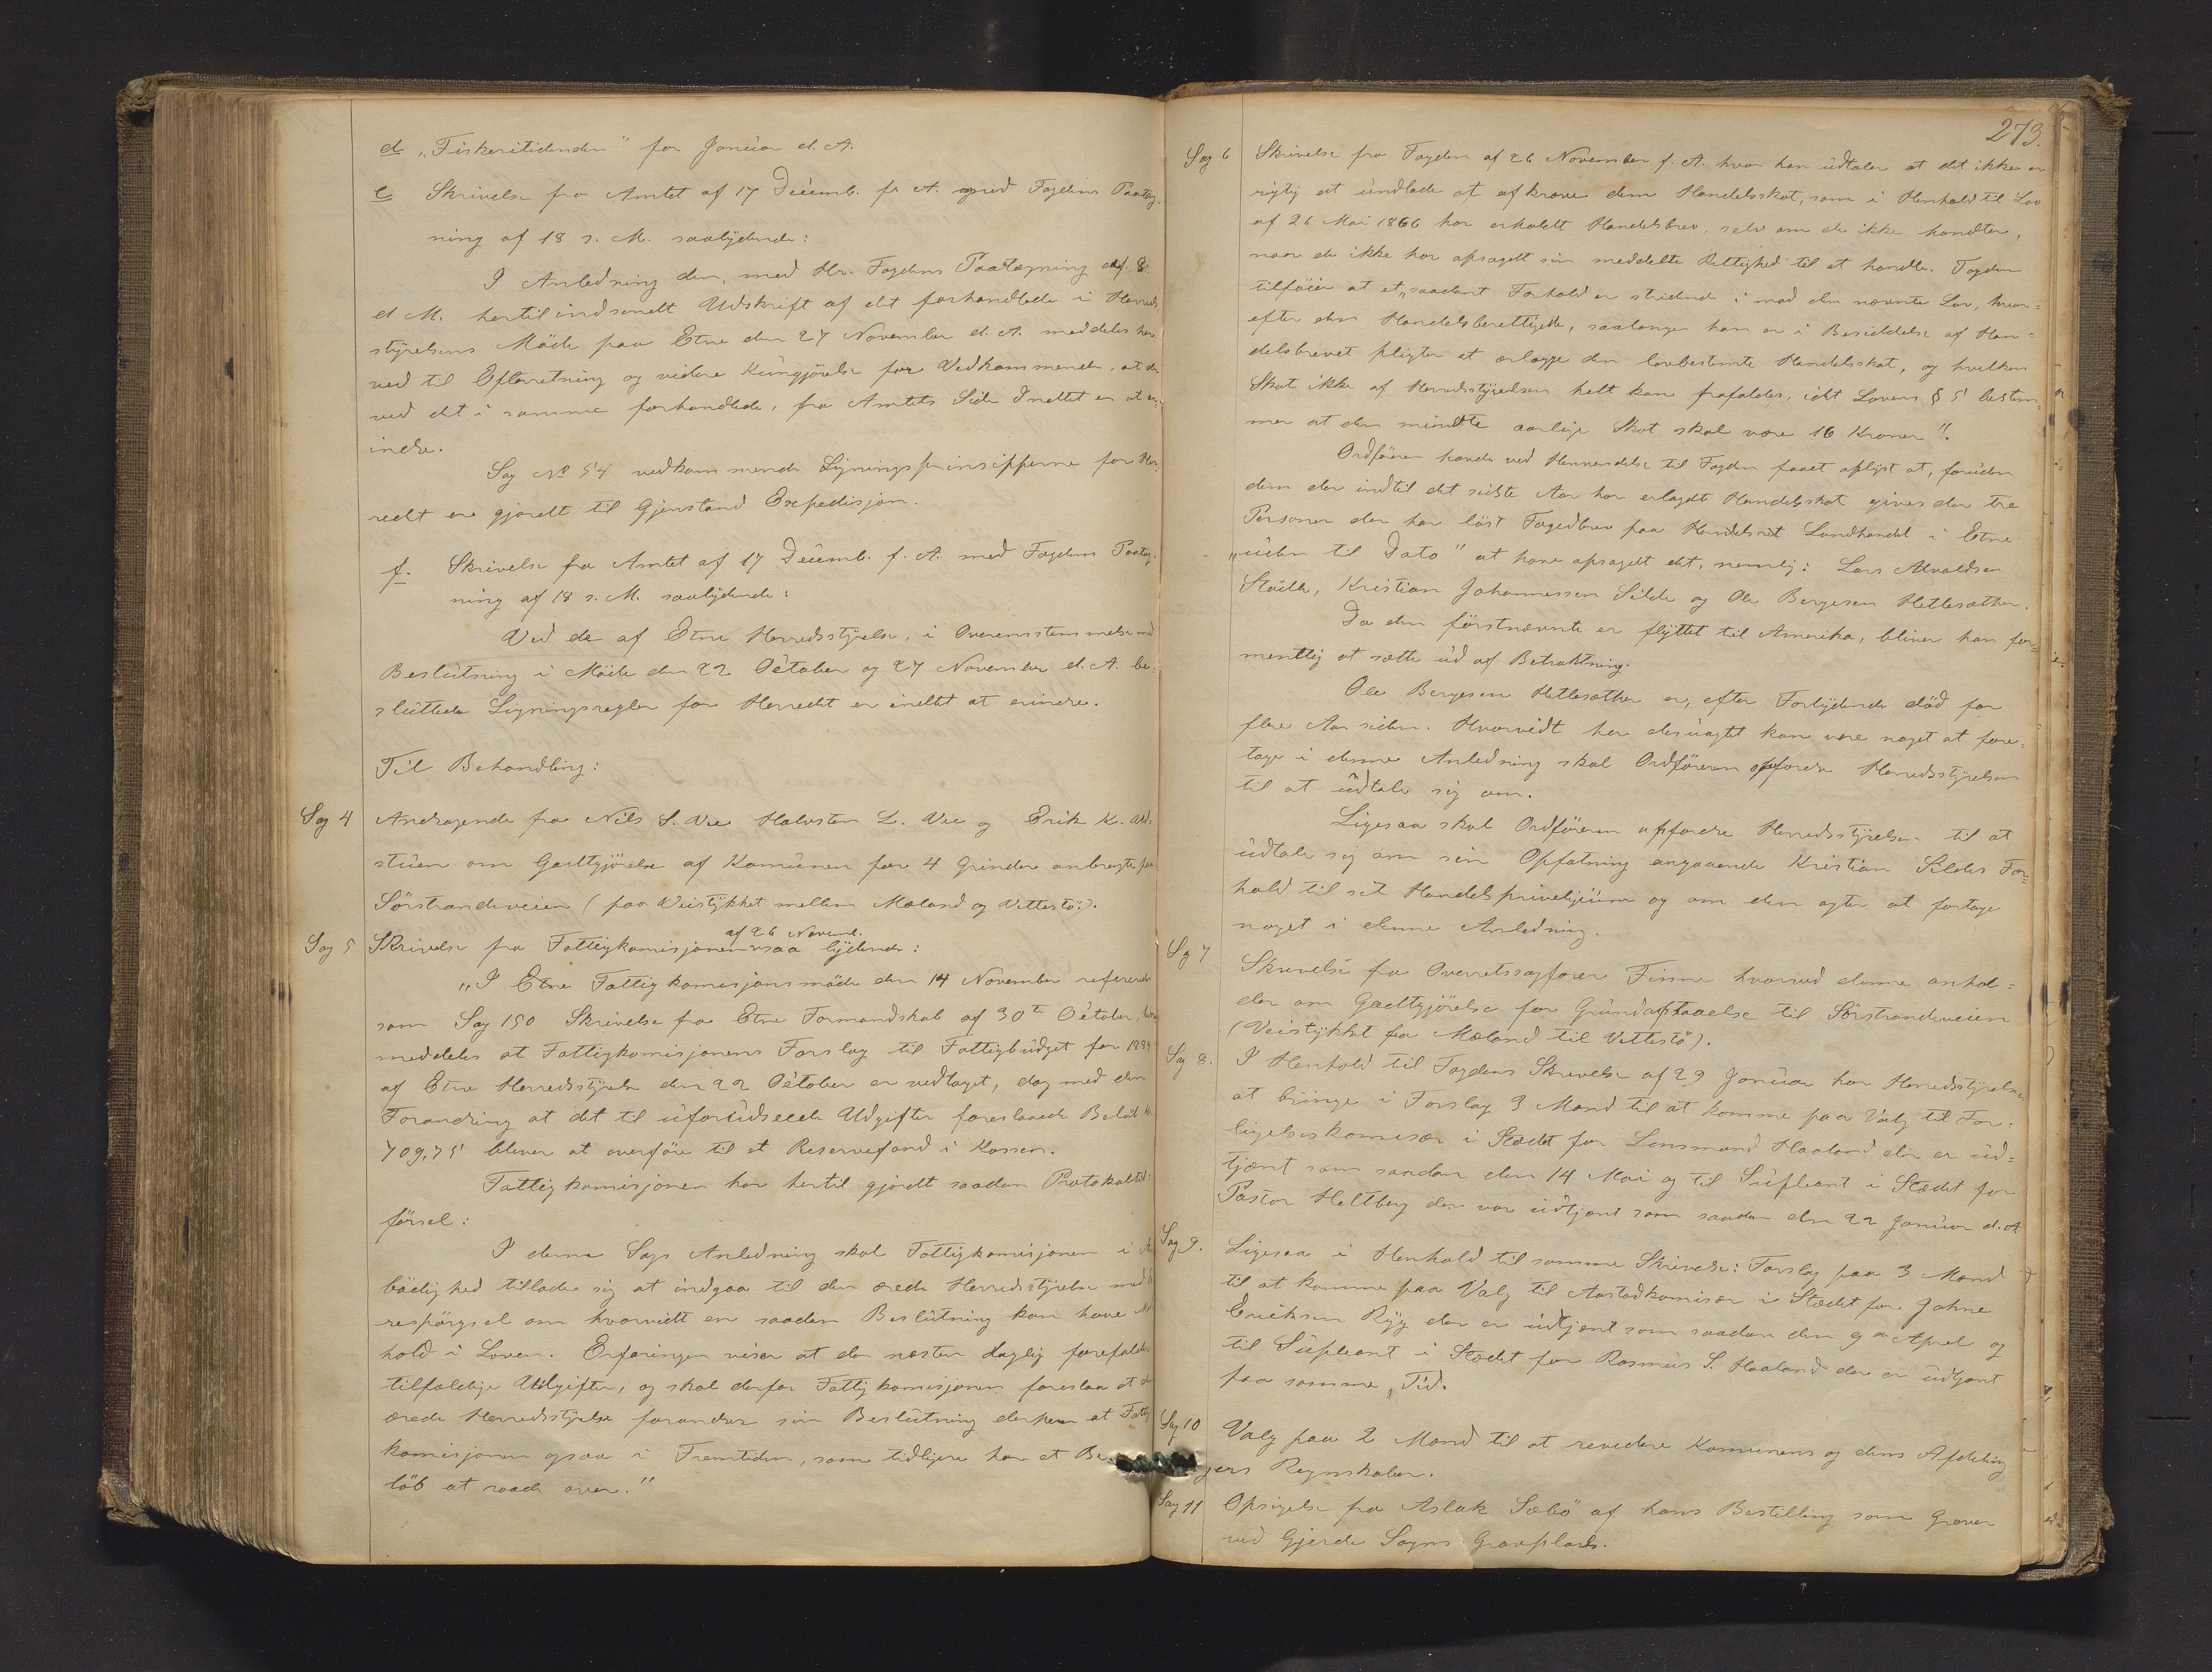 d „Fiskeritidenden" for Januar d. A.
e Skrivelse fra Amtet af 17 Decemb. f. A. med Fogdens Paateg-
ning af 18 s. M. saalydende:
I Anledning den, med Hr. Fogdens Paategning af 8
d M. hertil indsendt Udskrift af det forhandlede i Herreds
styrelsens Møde paa Etne den 27 November d. A. meddeles her
ved til Efterretning og videre Kungjørelse for Vedkommende, at der
ved det i samme forhandlede, fra Amtets Side Indtet er at er
indre.
Sag No 54 vedkommende Ligningsprinsipperne for Her
redt ere gjordt til Gjenstand Expedisjon.
f. Skrivelse fra Amtet af 17 Decemb. f. A. med Fogdens Paateg-
ning af 18 s. M. saalydende:
Ved de af Etne Herredsstyrelse, i Overensstemmelse med
Beslutning i Møde den 22 October og 27 November d. A. be-
sluttede Ligningsregler for Herredt er indtet at erindre.
Til Behandling:
Sag 4 Andragende fra Nils S. Vee Halvsten L. Vee og Erik K.
stuen om Godtgjørelse af Komunen for 4 Grinder anbragte paa
Sørstrandsveien (paa Veistykket mellem Mæland og Vettestø).
af 26 Novemb.
Sag 5 Skrivelse fra Fattigkomisjonen saa lydende:
„I Etne Fattigkomisjons møde den 14 November refereredes
som Sag 150 Skrivelse fra Etne Formandskab af 30te October,
meddeles at Fattigkomisjonens Forslag til Fattigbudget for 1889
af Etne Herredsstyrelse den 22 October er vedtaget, dog med den
Forandring at det til uforudseede Udgifter foreslaaede Beløb Kr.
709,75 bliver at overføre til et Reservefond i Kassen.
Fattigkomisjonen har hertil gjordt saadan Protokoltil-
førsel:
I denne Sags Anledning skal Fattigkomisjonen i
bødighed tillade sig at indgaa til den ærede Herredsstyrelse med
respørgsel om hvorvidt en saadan Beslutning kan have
hold i Loven. Erfaringen viser at der næsten daglig forefalder
tilfældige Udgifter, og skal derfor Fattigkomisjonen foreslaa at
ærede Herredsstyrelse forandrer sin Beslutning derhen at Fattig
komisjonen ogsaa i Fremtiden, som tidligere har et Be-
løb at raade over."
273.
Sag 6 Skrivelse fra Fogden af 26 November f. A. hvor han udtaler at det ikke er
rigtig at undlade at afkræve dem Handelsskat, som i Henhold til Lov
af 26 Mai 1866 har erholdt Handelsbrev, selv om de ikke handler,
naar de ikke har opsagdt sin meddelte Rettighed til at handle. Fogden
tilføier at et „saadant Forhold er stridende i mod den nævnte Lov, hvor-
efter den Handelsberettigede, saalænge han er i Besiddelse af Han-
delsbrevet pligter at erlægge den lovbestemte Handelsskat, og hvilken
Skat ikke af Herredsstyrelsen helt kan frafaldes, idet Lovens § 5 bestem-
mer at den mindste aarlige Skat skal være 16 Kroner".
Ordføren havde ved Henvendelse til Fogden faaet oplyst at, foruden
dem der indtil det sidste Aar har erlagdt Handelsskat gives der tre
Personer der har løst Fogedbrev paa Landhandel i Etne
„uden til Dato" at have opsagdt det, nemlig: Lars Alvaldsen
Stødle, Kristian Johannessen Silde og Ole Bergesen Hetlesæther.
Da den førstnævnte er flyttet til Amerika, bliver han for-
mentlig at sætte ud af Betraktning.
Ole Bergesen Hetlesæther er, efter Forlydende død for
flere Aar siden. Hvorvidt her desuagtet kan være noget at fore-
tage i denne Anledning skal Ordføreren opfordre Herredsstyrelsen
til at udtale sig om.
Ligesaa skal Ordføreren opfordre Herredsstyrelsen til at
udtale sig om sin Opfatning angaaende Kristian Sildes For-
hold til sit Handelsprivelijium og om den agter at fortage
noget i denne Anledning.
Sag 7 Skrivelse fra Overretssagfører Finne hvorved denne anhol-
der om Godtgjørelse for Grundafstaaelse til Sørstrandsveien
(Veistykket fra Mæland til Vettestø).
Sag 8. I Henhold til Fogdens Skrivelse af 29 Januar har Herredsstyrelsen
at bringe i Forslag 3 Mænd til at komme paa Valg til For-
ligelseskomisær i Stedet for Lensmand Haaland der er ud-
tjent som saadan den 14 Mai og til Supleant i Stedet for
Pastor Heltberg der var udtjent som saadan den 22 Januar d. A
Sag 9. Ligesaa i Henhold til samme Skrivelse: Forslag paa 3 Mænd
til at komme paa Valg til Aastadkomisær i Stedet for Johne
Eriksen Ryg der er udtjent som saadan den 9de April og
til Supleant i Stedet for Rasmus S. Haaland der er udtjent
paa samme Tid.
Sag 10 Valg paa 2 Mænd til at revidere Komunens og dens Afdeling
gers Regnskaber.
Sag 11 Opsigelse fra Aslak Sæbø af hans Bestilling som Graver
ved Gjerde Sogns Gravplads.